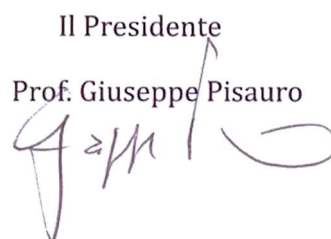 Il Presidente
Prof. Giuseppe Pisauro